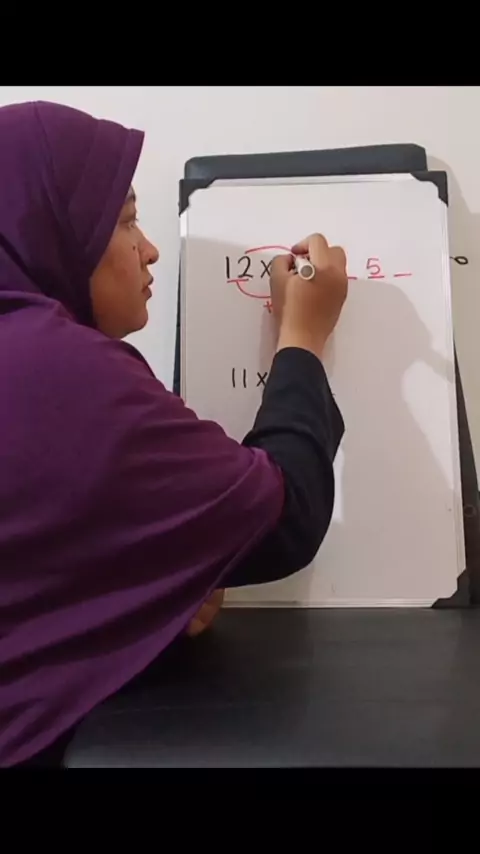 12 x _ 5 _
+
11 x